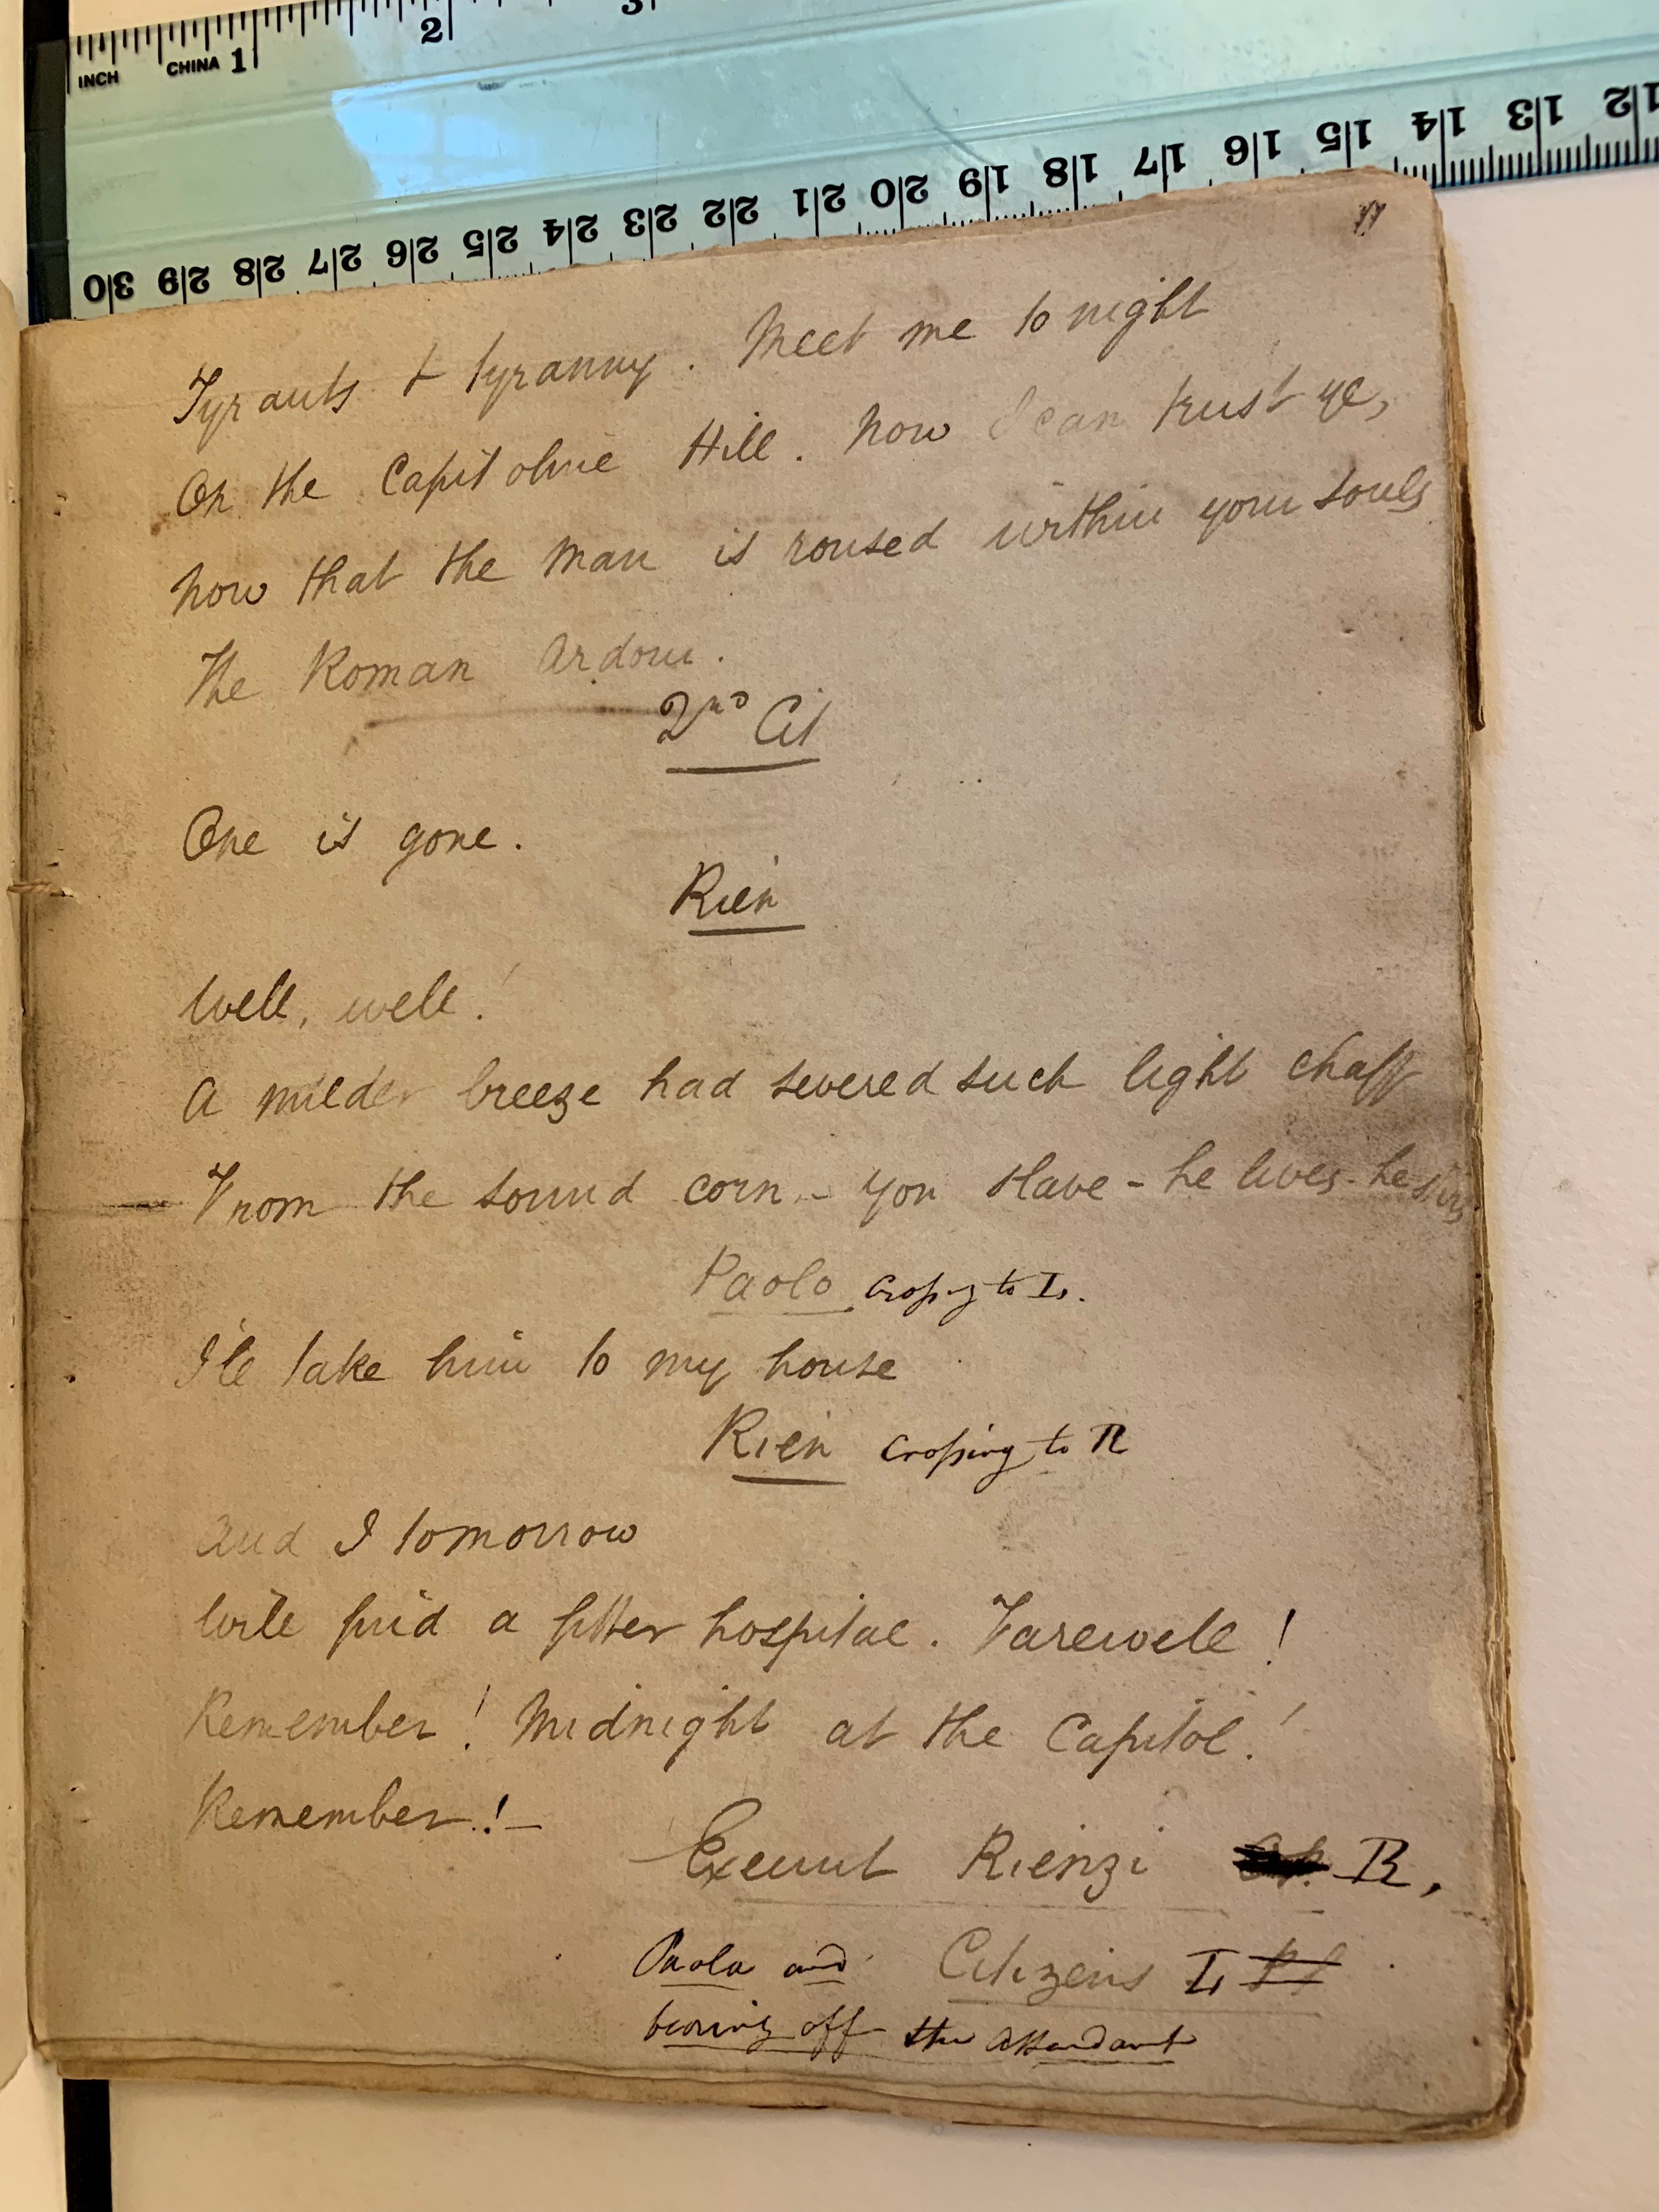 INCH CHINA 1 2 3
30 29 28 27 26 25 24 23 22 21 20 19 18 17 16 15 14 13 12
Tyrants & tyranny. Meet me to night
On the Capitoline Hill. Now I can trust ye,
Now that the man is roused within your souls
The Roman Ardour.
2nd Cit
One is gone.
Rien
Well, well!
A milder breeze had severed such light chaff
From the sound corn. - You slave - he lives - he
Paolo crossing to L.
I'll take him to my house
Rien crossing to R
And I tomorrow
Will find a fitter hospital. Farewell!
Remember! Midnight at the Capitol!
Remember!-
Exeunt Rienzi R,
Paolo and Citizens L
bearing off the Attendant